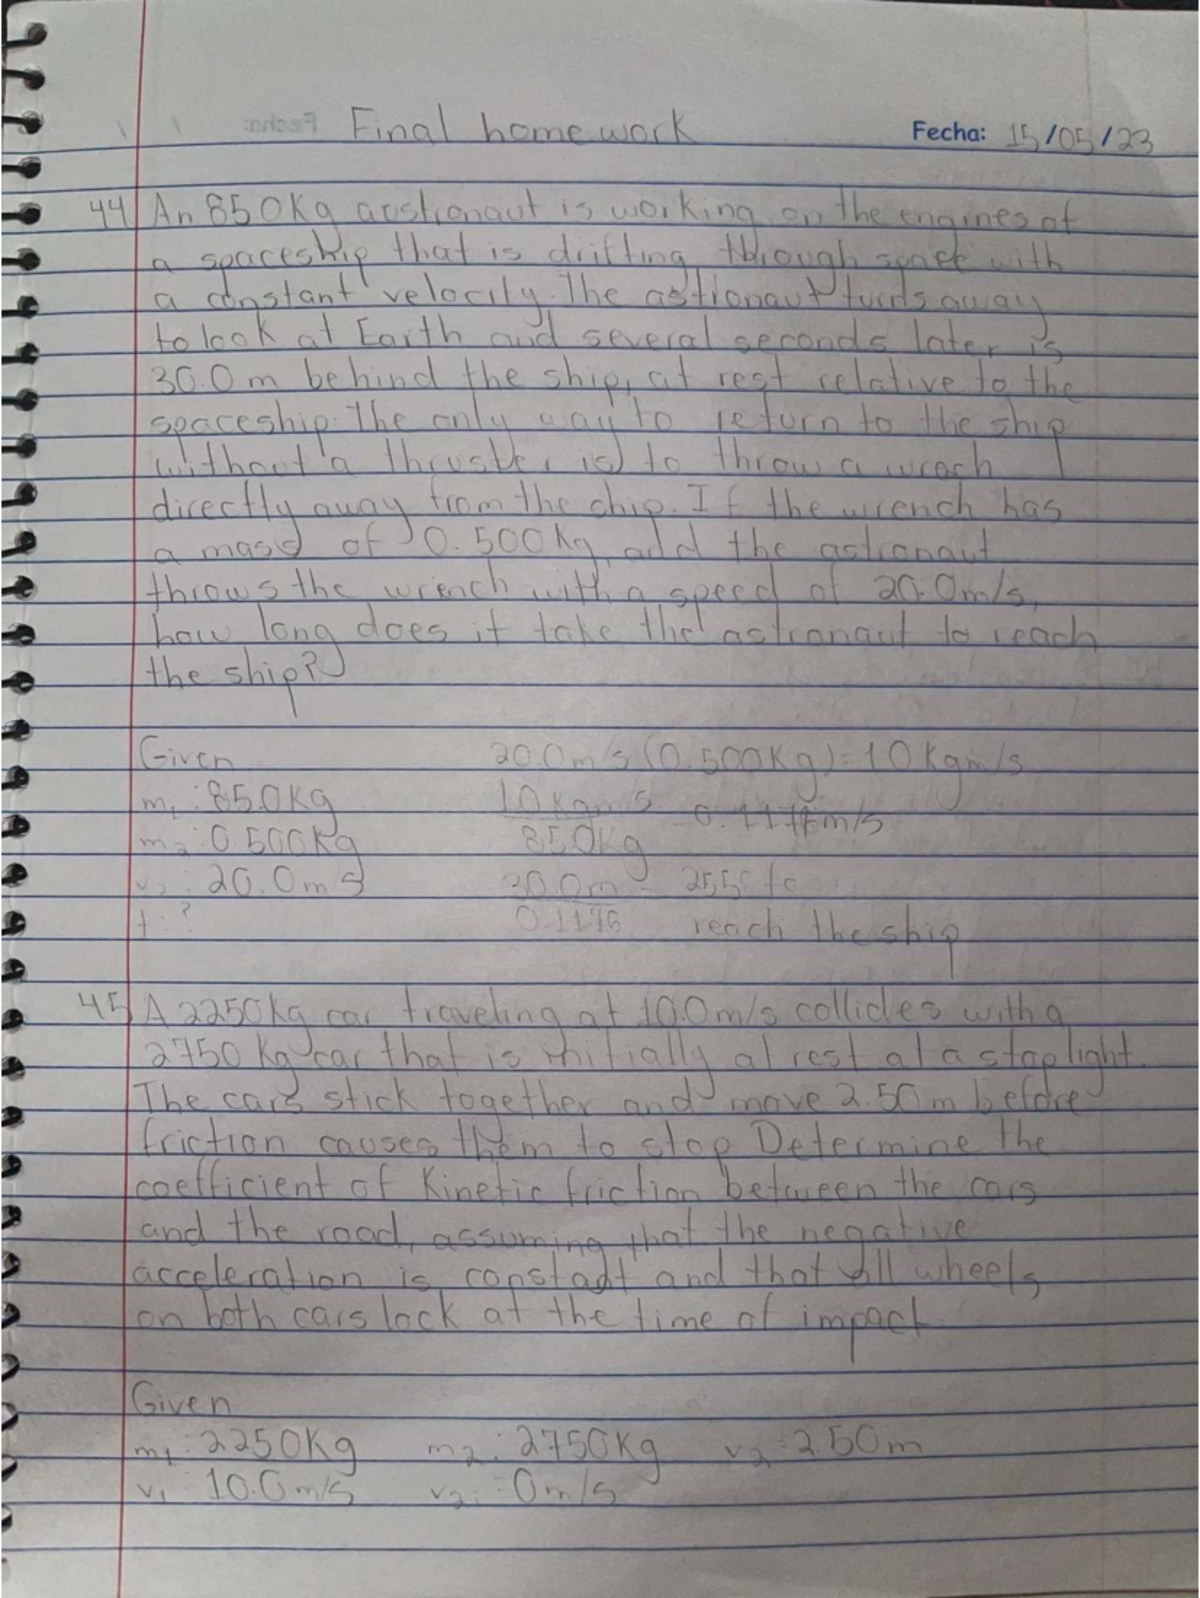 Final homework Fecha: 15/05/23
44. An 85.0Kg austronaut is working on the engines of
a spaceship that is drifting through space with
a constant velocity. The astronaut turns away
to look at Earth and several seconds later is
30.0m behind the ship, at rest relative to the
spaceship. The only way to return to the ship
without a thruster is to throw a wrech
directly away from the ship. If the wrench has
a mass of 0.500Kg, and the astronaut
throws the wrench with a speed of 20.0m/s,
how long does it take the astronaut to reach
the ship?
Given 20.0m/s (0.500Kg)=10Kgm/s
m1: 85.0Kg 10Kgm/s 0.1176m/s
m2: 0.500Kg 85.0Kg
v2: 20.0m/s 30.0m = 255s to
t: ? 0.1176 reach the ship
45. A 2250Kg car traveling at 10.0m/s collides with a
2750 Kg car that is initially at rest at a stoplight.
The cars stick together and move 2.50m before
friction causes them to stop Determine the
coefficient of Kinetic friction between the cars
and the road, assuming that the negative
acceleration is constant and that all wheels
on both cars lock at the time of impact
Given
m1: 2250Kg m2: 2750Kg v2=2.50m
v1: 10.0m/s v2: 0m/s